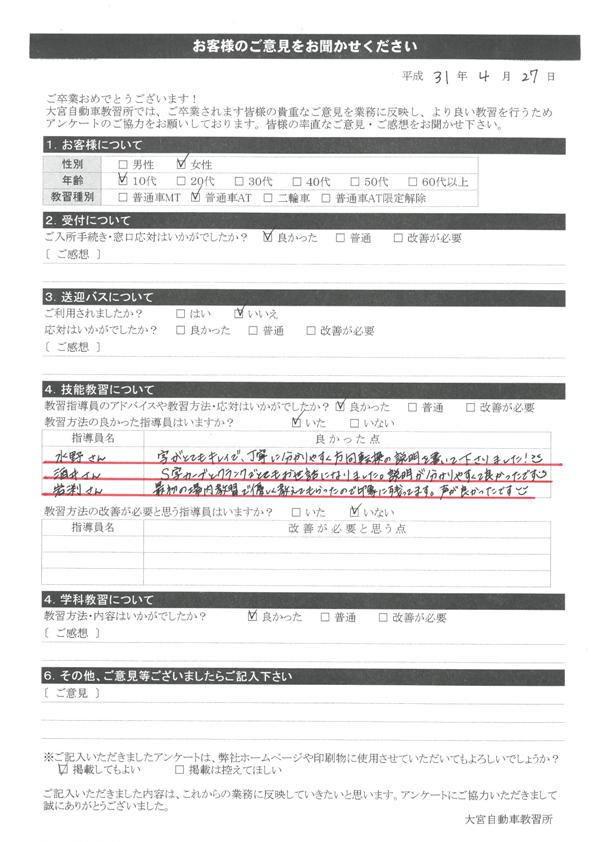 お客様のご意見をお聞かせください
平成 31 年 4 月 27 日
ご卒業おめでとうございます!
大宮自動車教習所では、ご卒業されます皆様の貴重なご意見を業務に反映し、より良い教習を行うため
アンケートのご協力をお願いしております。皆様の率直なご意見・ご感想をお聞かせ下さい。
1. お客様について
性別 □ 男性 ☑ 女性
年齢 ☑ 10代 □ 20代 □ 30代 □ 40代 □ 50代 □ 60代以上
教習種別 □ 普通車MT ☑ 普通車AT □ 二輪車 □ 普通車AT限定解除
2. 受付について
ご入所手続き・窓口応対はいかがでしたか? ☑ 良かった □ 普通 □ 改善が必要
〔 ご感想 〕
3. 送迎バスについて
ご利用されましたか? □ はい ☑ いいえ
応対はいかがでしたか? □ 良かった □ 普通 □ 改善が必要
〔 ご感想 〕
4. 技能教習について
教習指導員のアドバイスや教習方法・応対はいかがでしたか? ☑ 良かった □ 普通 □ 改善が必要
教習方法の良かった指導員はいますか? ☑ いた □ いない
指導員名 良かった点
水野さん 字がとてもキレイで、丁寧に分かりやすく方向転換の説明を書いて下さりました!
酒井さん S字カーブとクランクでとてもお世話になりました。説明が分かりやすくて良かったです
さん 最初の場内教習で優しく教えてもらったので印象に残ってます。声が良かったです
教習方法の改善が必要と思う指導員はいますか? □ いた ☑ いない
指導員名 改善が必要と思う点
4. 学科教習について
教習方法・内容はいかがでしたか? ☑ 良かった □ 普通 □ 改善が必要
〔 ご感想 〕
6. その他、ご意見等ございましたらご記入下さい
〔 ご意見 〕
※ご記入いただきましたアンケートは、弊社ホームページや印刷物に使用させていただいてもよろしいでしょうか?
☑ 掲載してもよい □ 掲載は控えてほしい
ご記入いただきました内容は、これからの業務に反映していきたいと思います。アンケートにご協力いただきまして
誠にありがとうございました。
大宮自動車教習所